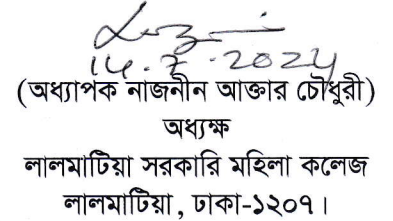 14.7.2024
(অধ্যাপক নাজনীন আক্তার চৌধুরী)
অধ্যক্ষ
লালমাটিয়া সরকারি মহিলা কলেজ
লালমাটিয়া, ঢাকা-১২০৭।